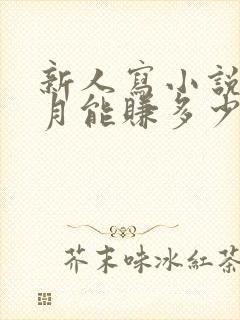 新人寫小說
月能賺多少
芥末味冰紅茶